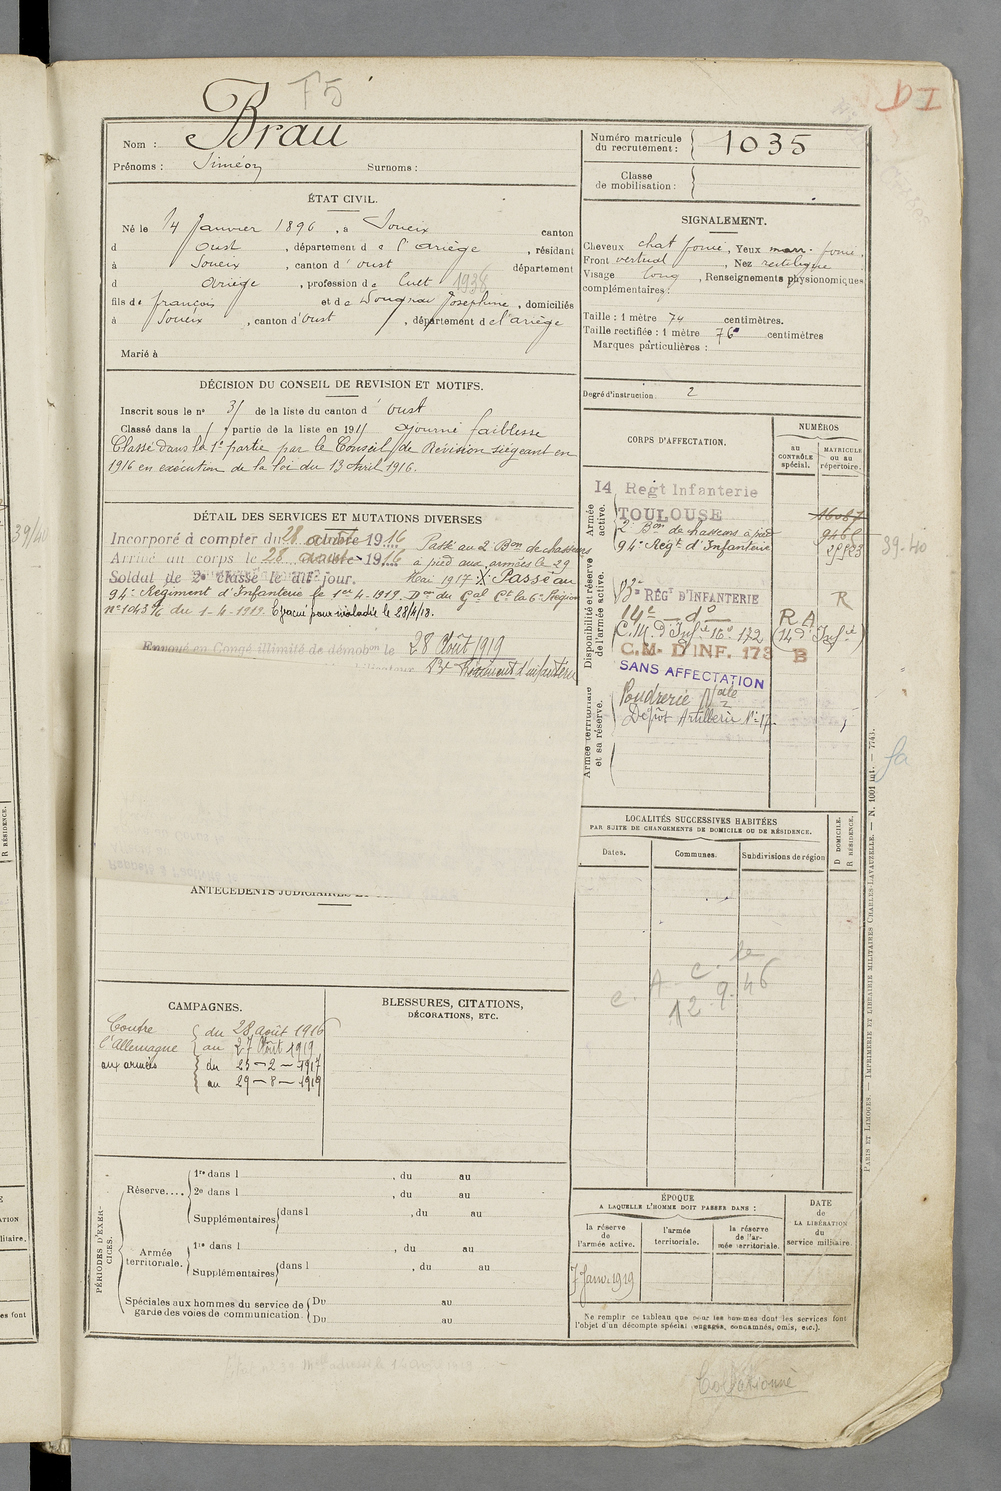 F5
D I
Nom : Brau
Prénoms : Siméon Surnoms :
Numéro matricule du recrutement : 1035
Classe de mobilisation :
ÉTAT CIVIL.
Né le 14 Janvier 1896, à Soueix canton
d Oust, département de l'ariège, résidant
à Soueix, canton d'oust département
d Ariège, profession de Cult 1938
fils de françois et de Josephine, domiciliés
à Soueix, canton d'oust, département de l'ariège
Marié à
SIGNALEMENT.
Cheveux chat foncé, Yeux marr. foncé
Front vertical, Nez rectiligne
Visage long, Renseignements physionomiques
complémentaires :
Taille : 1 mètre 74 centimètres.
Taille rectifiée : 1 mètre 76 centimètres
Marques particulières :
Degré d'instruction. 2
DÉCISION DU CONSEIL DE REVISION ET MOTIFS.
Inscrit sous le n° 31 de la liste du canton d'oust
Classé dans la partie de la liste en 191 ajourné faiblesse
Classé dans la 1e partie par le Conseil de Révision siégeant en
1916 en exécution de la loi du 13 Avril 1916.
DÉTAIL DES SERVICES ET MUTATIONS DIVERSES
Incorporé à compter du 28 1916 Passé au 2e Bon de chasseurs
Arrivé au corps le 28 1916 à pied aux armées le 29
Soldat de 2e classe le dit jour. Mai 1917. Passé au
94e Régiment d'Infanterie le 1er 4-1919. Don du Gal Ct la 6e Région
n° 1043 du 1-4-1919. Evacué pour maladie le 28/4/18.
Envoyé en Congé illimité de démobon le 28 Août 1919
Régiment d'infanterie
ANTÉCÉDENTS JUDICIAIRES ET
CORPS D'AFFECTATION.
NUMÉROS
AU CONTRÔLE spécial.
MATRICULE ou au répertoire.
Armée active.
14 Regt Infanterie
TOULOUSE
2e Bon de chasseurs à pied
94e Régt d'Infanterie
39-40
39/40
Disponibilité et réserve de l'armée active.
RÉGt D'INFANTERIE
14e do
C.M. d'Infie 16° 172
R A
(14e d'Infie)
R
C.M. D'INF. 173 B
SANS AFFECTATION
Armée territoriale et sa réserve.
Poudrerie Nale
Dépôt Artillerie N° 17.
fa
LOCALITÉS SUCCESSIVES HABITÉES
PAR SUITE DE CHANGEMENTS DE DOMICILE OU DE RÉSIDENCE.
Dates.
Communes.
Subdivisions de région
D DOMICILE.
R RÉSIDENCE.
c. A. c. le
12 9. 46
CAMPAGNES.
Contre l'Allemagne
du 28 août 1916
au 27 Août 1919
aux armées
du 25-2-1917
au 29-8-1919
BLESSURES, CITATIONS,
DÉCORATIONS, ETC.
PÉRIODES D'EXERCICES.
Réserve....
1re dans l , du au
2e dans l , du au
Supplémentaires dans l , du au
Armée territoriale.
1re dans l , du au
Supplémentaires dans l , du au
Spéciales aux hommes du service de garde des voies de communication.
Du au
Du au
ÉPOQUE
A LAQUELLE L'HOMME DOIT PASSER DANS :
la réserve de l'armée active.
l'armée territoriale.
la réserve de l'armée territoriale.
DATE de LA LIBÉRATION du service militaire.
Janv. 1919
Ne remplir ce tableau que pour les hommes dont les services font
l'objet d'un décompte spécial (engagés, condamnés, omis, etc.).
PARIS ET LIMOGES. — IMPRIMERIE ET LIBRAIRIE MILITAIRES CHARLES-LAVAUZELLE. — N. 1001 int. — 7743.
Collationné